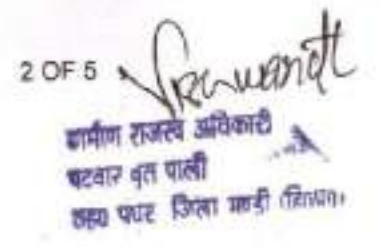 2 OF 5
ग्रामीण राजस्व अधिकारी
पटवार वृत पाली
पधर जिला मण्डी (हि०प्र०)